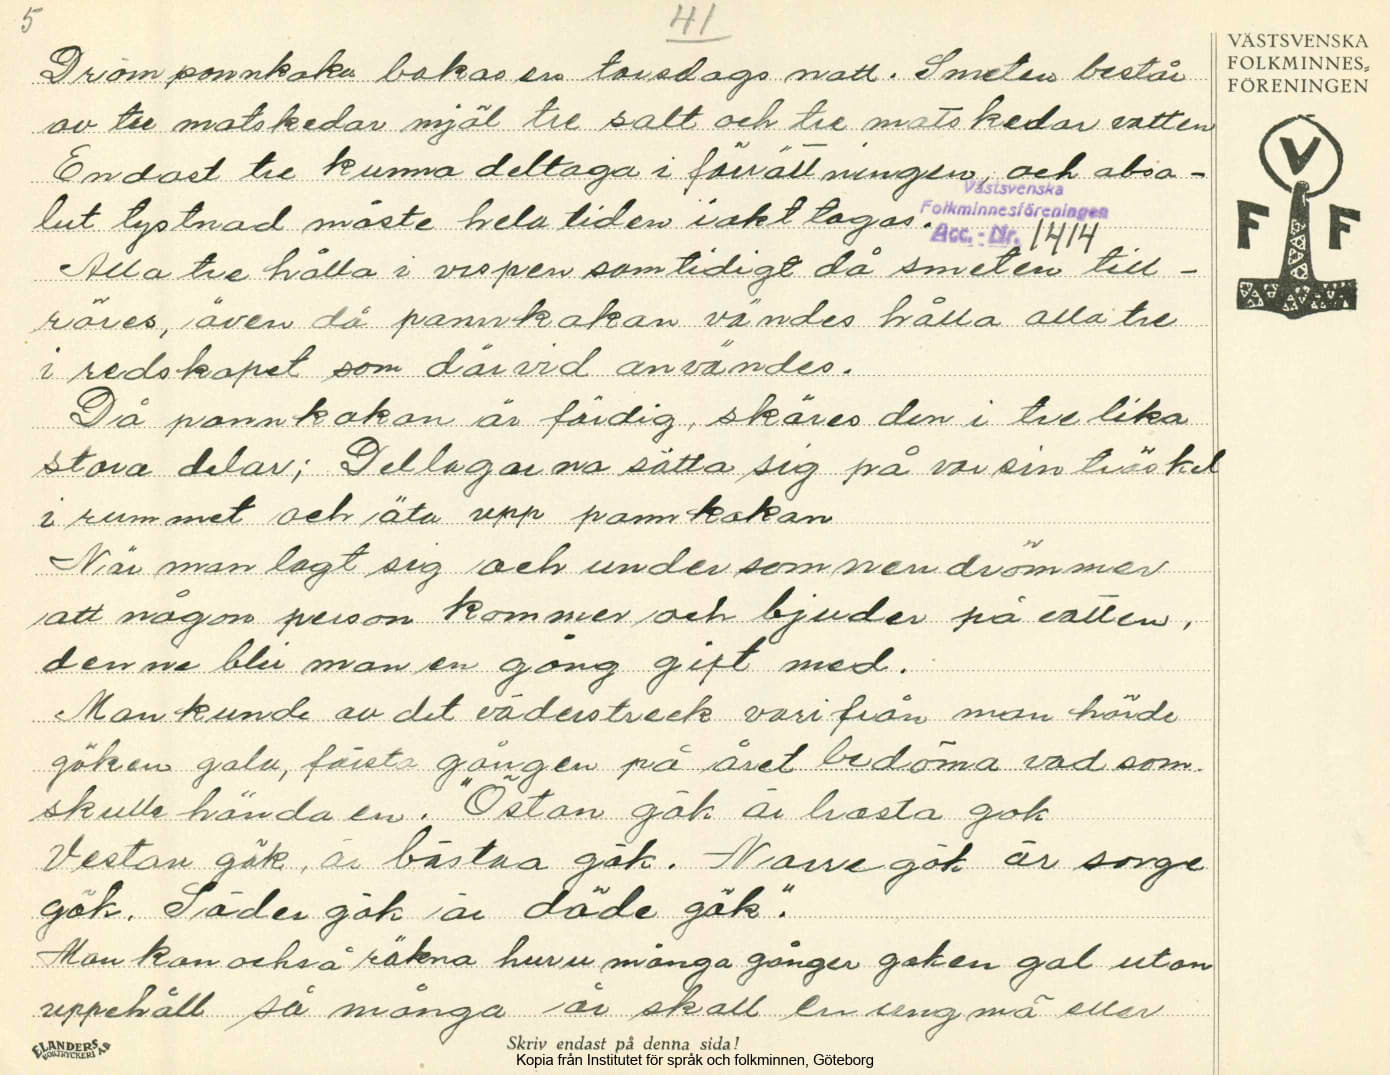 5
41
VÄSTSVENSKA
FOLKMINNES-
FÖRENINGEN
V
F F
Drömpannkaka bakas en torsdags natt. Smeten består
av tre matskedar mjöl tre salt och tre matskedar vatten
Endast tre kunna deltaga i förrättningen, och abso-
lut tystnad måste hela tiden iakttagas.
Västsvenska
Folkminnesföreningen
Acc.-Nr. 1414
Alla tre hålla i vispen samtidigt då smeten till-
röres, även då pannkakan vändes hålla alla tre
i redskapet som därvid användes.
Då pannkakan är färdig, skäres den i tre lika
stora delar; Deltagarna sätta sig på var sin tröskel
i rummet och äta upp pannkakan
När man lagt sig och under sömnen drömmer
att någon person kommer och bjuder på vatten,
denne blir man en gång gift med.
Man kunde av det väderstreck varifrån man hörde
göken gala, första gången på året bedöma vad som
skulle hända en. "Östan gök är brasta gök
Vestan gök, är bästaa gök. Norre gök är sorge
gök. Söder gök är döde gök".
Man kan också räkna huru många gånger göken gal utan
uppehåll så många år skall en ung mö eller
ELANDERS
BOKTRYCKERI AB
Skriv endast på denna sida!
Kopia från Institutet för språk och folkminnen, Göteborg